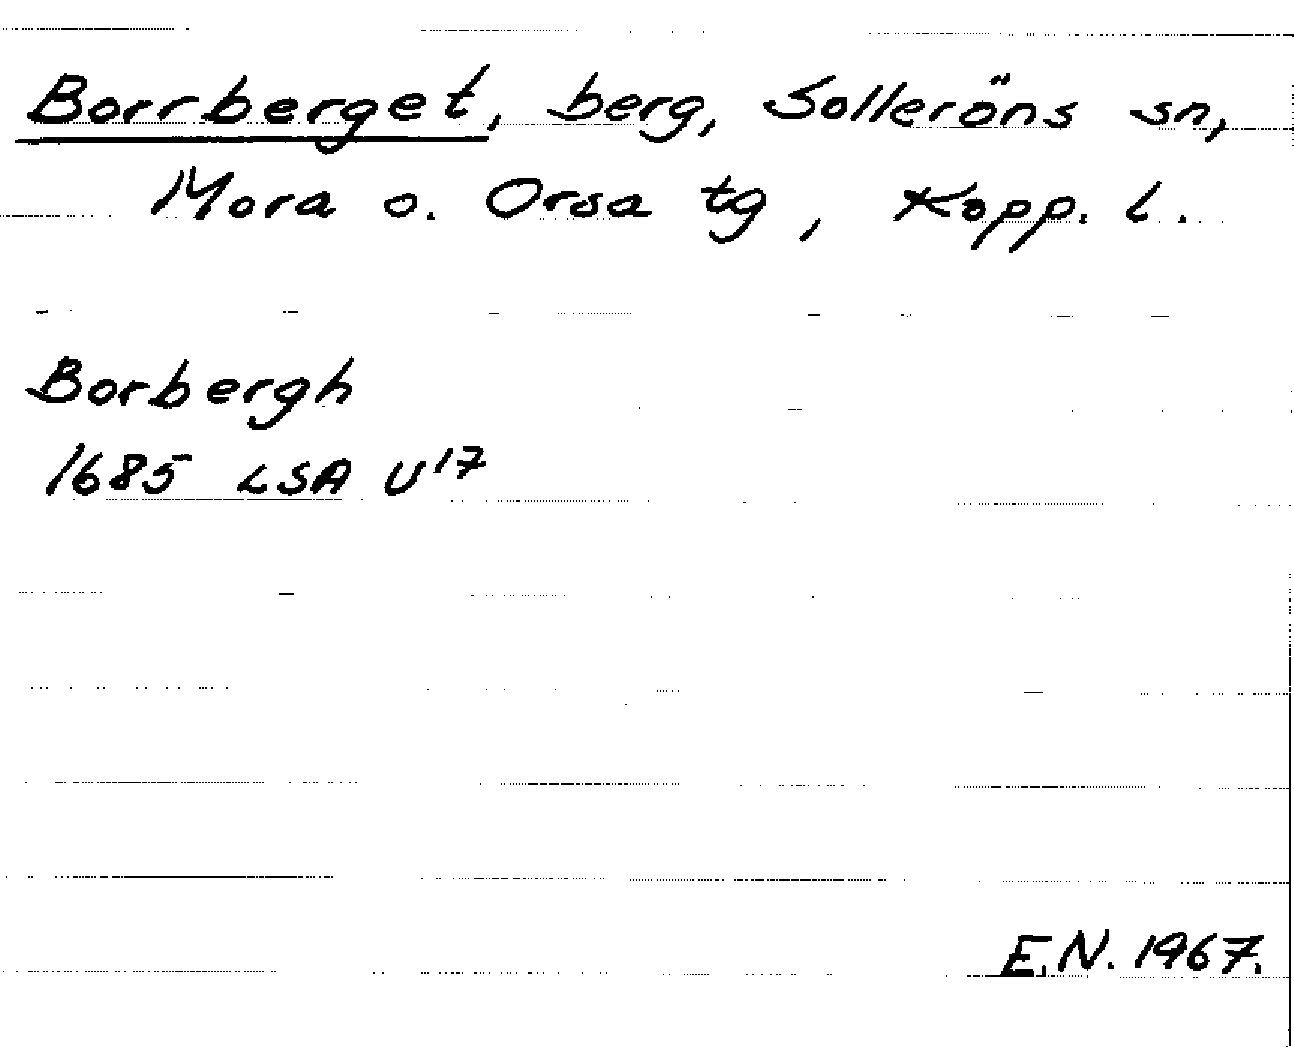 Borrberget, berg, Solleröns sn,
Mora o. Orsa tg, Kopp. L.
Borbergh
1685 LSA U17
E.N. 1967.